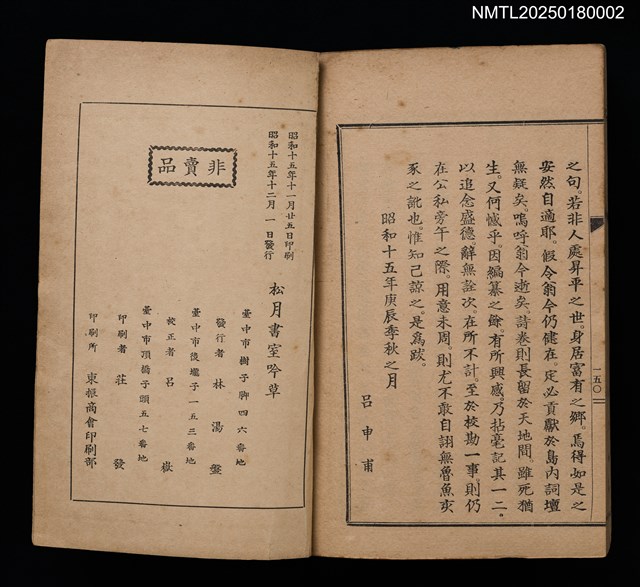 NMTL20250180002
一五〇
之句。若非人處昇平之世。身居富有之鄉。焉得如是之
安然自適耶。假令翁今仍健在。定必貢獻於島內詞壇
無疑矣。嗚呼。翁今逝矣。詩卷則長留於天地間。雖死猶
生。又何憾乎。因編纂之餘。有所興感。乃拈毫記其一二。
以追念盛德。辭無詮次。在所不計。至於校勘一事。則仍
在公私旁午之際。用意未周。則尤不敢自詡無魯魚亥
豕之訛也。惟知己諒之。是爲跋。
昭和十五年庚辰季秋之月
呂申甫
昭和十五年十一月廿五日印刷
昭和十五年十二月一日發行
非賣品
松月書室吟草
臺中市樹子脚四六番地
發行者 林湯盤
臺中市後壠子一五三番地
校正者 呂嶽
臺中市頂橋子頭五七番地
印刷者 莊發
印刷所 東振商會印刷部